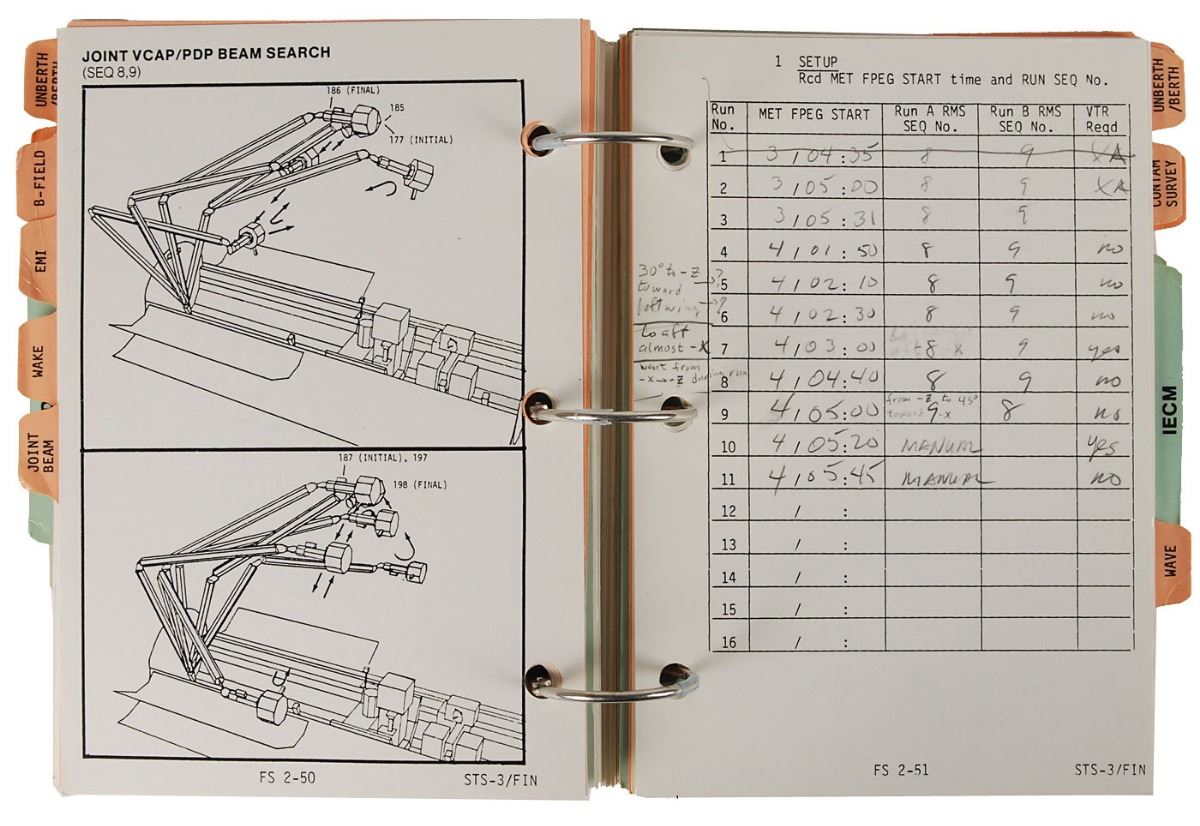 JOINT VCAP/PDP BEAM SEARCH
(SEQ 8,9)
186 (FINAL)
185
177 (INITIAL)
187 (INITIAL), 197
198 (FINAL)
FS 2-50 STS-3/FIN
UNBERTH
/BERTH
B-FIELD
EMI
WAKE
JOINT
BEAM
1 SETUP
Rcd MET FPEG START time and RUN SEQ No.
Run No. MET FPEG START Run A RMS SEQ No. Run B RMS SEQ No. VTR Reqd
1 3/04:35 8 9
2 3/05:00 8 9
3 3/05:31 8 9
4 4/01:50 8 9 no
5 4/02:10 8 9 no
6 4/02:30 8 9 no
7 4/03:00 8 9 yes
8 4/04:40 8 9 no
from -Z to 45°
toward -X
9 4/05:00 9 8 no
10 4/05:20 MANUAL yes
11 4/05:45 MANUAL no
12 / :
13 / :
14 / :
15 / :
16 / :
30° to -Z
toward →?
left wing →?
to aft
almost -X
want from
-X→-Z during run
FS 2-51 STS-3/FIN
UNBERTH
/BERTH
CONTAM
SURVEY
IECM
WAVE